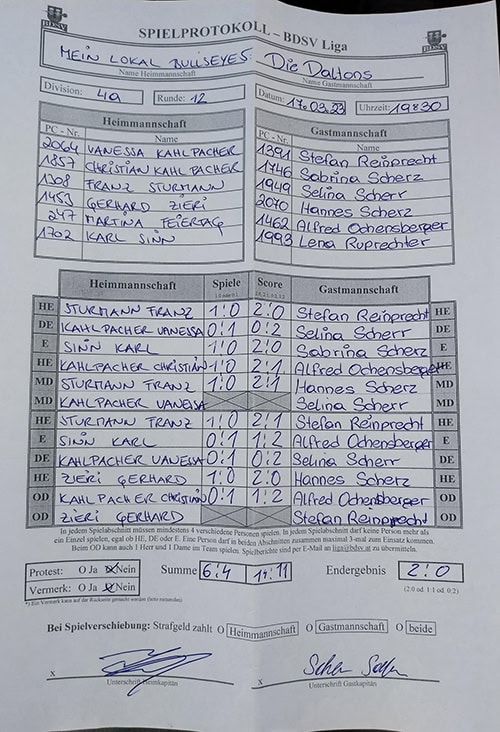 SPIELPROTOKOLL – BDSV Liga
MEIN LOKAL BULLSEYES : Die Daltons
Name Heimmannschaft Name Gastmannschaft
Division: 4a Runde: 12 Datum: 17.03.23 Uhrzeit: 19:30
Heimmannschaft Gastmannschaft
PC - Nr. Name PC - Nr. Name
2064 VANESSA KAHLPACHER 1391 Stefan Reinprecht
1857 CHRISTIAN KAHLPACHER 1746 Sabrina Scherz
1308 FRANZ STURMANN 1949 Selina Scherr
1453 GERHARD ZIERI 2070 Hannes Scherz
247 MARTINA FEIERTAG 1462 Alfred Ochensberger
1702 KARL SINN 1993 Lena Ruprechter
Heimmannschaft Spiele Score Gastmannschaft
HE STURMANN FRANZ 1:0 2:0 Stefan Reinprecht HE
DE KAHLPACHER VANESSA 0:1 0:2 Selina Scherr DE
E SINN KARL 1:0 2:0 Sabrina Scherz E
HE KAHLPACHER CHRISTIAN 1:0 2:1 Alfred Ochensberger HE
MD STURMANN FRANZ 1:0 2:1 Hannes Scherz MD
MD KAHLPACHER VANESSA Selina Scherr MD
HE STURMANN FRANZ 1:0 2:1 Stefan Reinprecht HE
E SINN KARL 0:1 1:2 Alfred Ochensberger E
DE KAHLPACHER VANESSA 0:1 0:2 Selina Scherr DE
HE ZIERI GERHARD 1:0 2:0 Hannes Scherz HE
OD KAHLPACHER CHRISTIAN 0:1 1:2 Alfred Ochensberger OD
OD ZIERI GERHARD Stefan Reinprecht OD
In jedem Spielabschnitt müssen mindestens 4 verschiedene Personen spielen. In jedem Spielabschnitt darf keine Person mehr als
ein Einzel spielen, egal ob HE, DE oder E. Eine Person darf in beiden Abschnitten zusammen maximal 3-mal zum Einsatz kommen.
Beim OD kann auch 1 Herr und 1 Dame im Team spielen. Spielberichte sind per E-Mail an liga@bdsv.at zu übermitteln.
Protest: O Ja O Nein Summe 6:4 14:11 Endergebnis 2:0
Vermerk: O Ja O Nein (2:0 od. 1:1 od. 0:2)
*) Ein Vermerk kann auf der Rückseite gemacht werden (bitte umwenden)
Bei Spielverschiebung: Strafgeld zahlt O Heimmannschaft O Gastmannschaft O beide
x x
Unterschrift Heimkapitän Unterschrift Gastkapitän